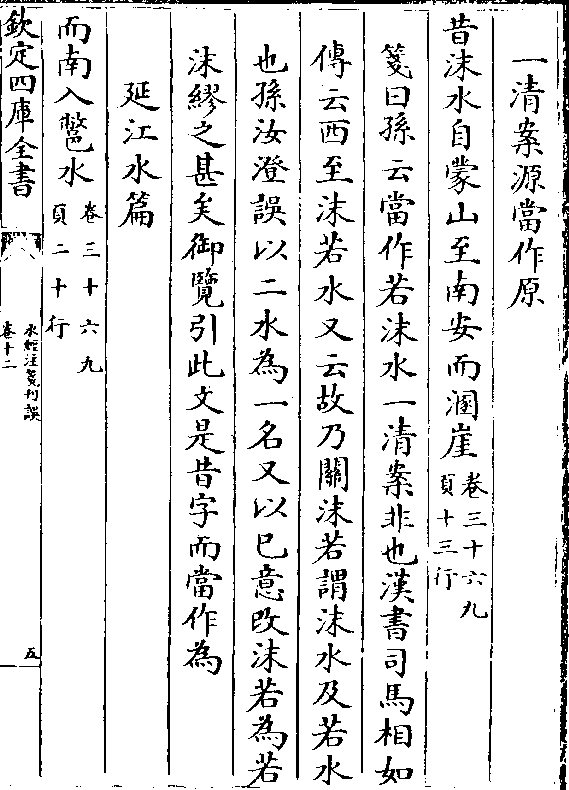 一清案源當作原
昔沫水自蒙山至南安而溷崖卷三十六九頁十三行
箋曰孫云當作若沫水一清案非也漢書司馬相如
傳云西至沫若水又云故乃關沫若謂沫水及若水
也孫汝澄誤以二水為一名又以已意改沫若為若
沫繆之甚矣御覽引此文是昔字而當作為
延江水篇
而南入鄨水卷三十六九頁二十行
欽定四庫全書
水經注箋刊誤
卷十二
五